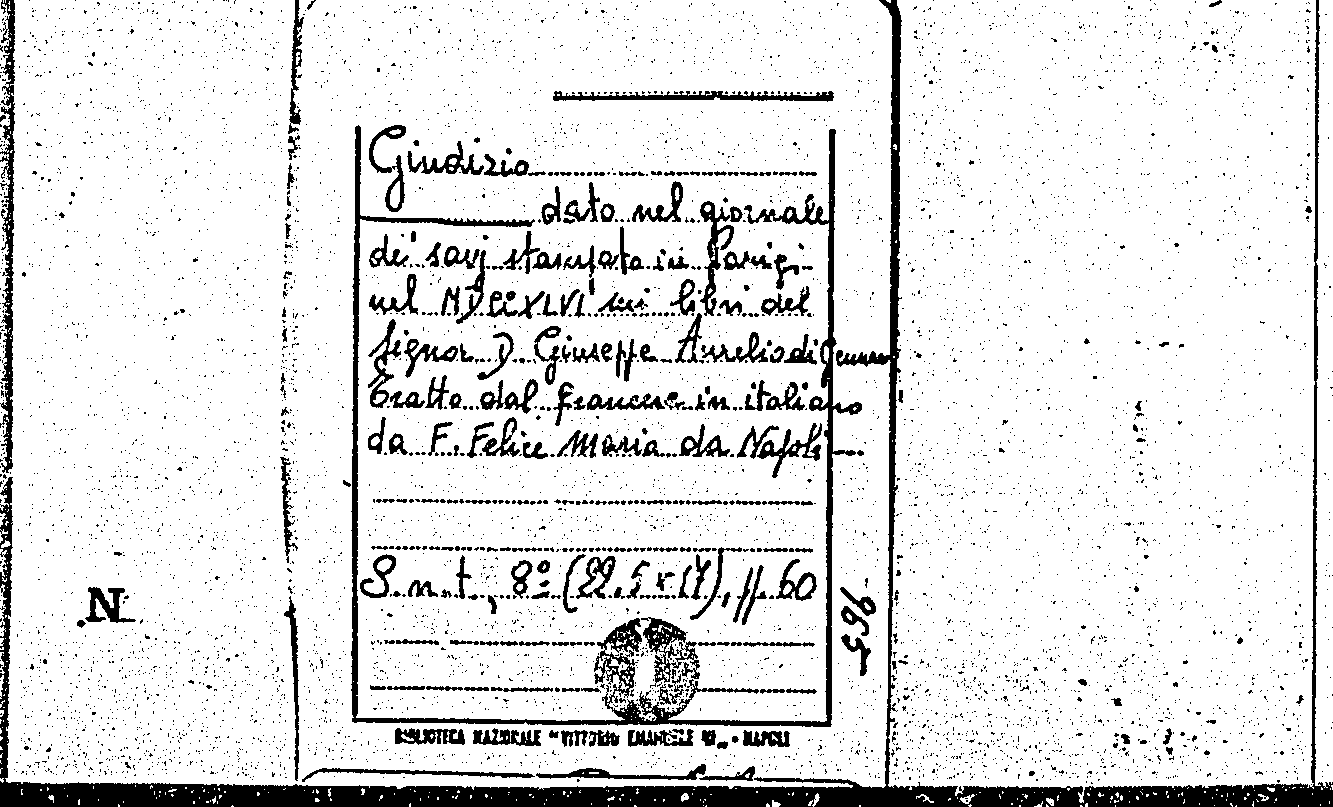 Giudizio
dato nel giornale
de' savj stampato in Parigi
nel MDCCXLVI sui libri del
Signor D Giuseppe Aurelio di Gennaro
Tratto dal francese in italiano
da F. Felice Maria da Napoli —
S.n.t., 8º (22.5 x 17), pp. 60
965
N
BIBLIOTECA NAZIONALE "VITTORIO EMANUELE III„ - NAPOLI